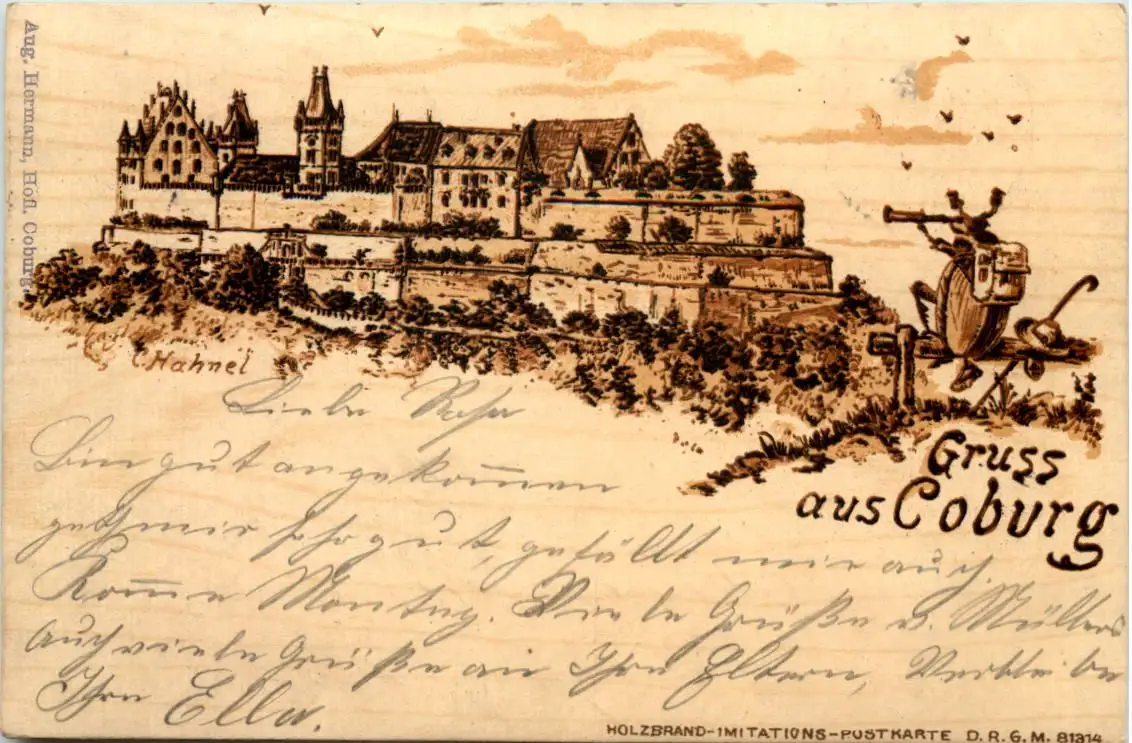 Aug. Hermann, Hofl. Coburg.
C Hahnel
Gruss
aus Coburg
Liebe Rosa
Bin gut angekom̅en
geht mir sehr gut, gefällt mir auch.
Kom̅e Montag. Viele Grüße v. Müllers
Auch viele Grüße an Ihre Eltern, Verbleibe
Ihre Ella.
HOLZBRAND-IMITATIONS-POSTKARTE D. R. G. M. 81314